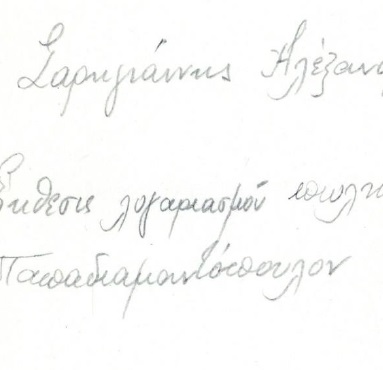 Σαρηγιάννης Αλέξαν
Έκθεσις λογαριασμού
Παπαδιαμαντόπουλον